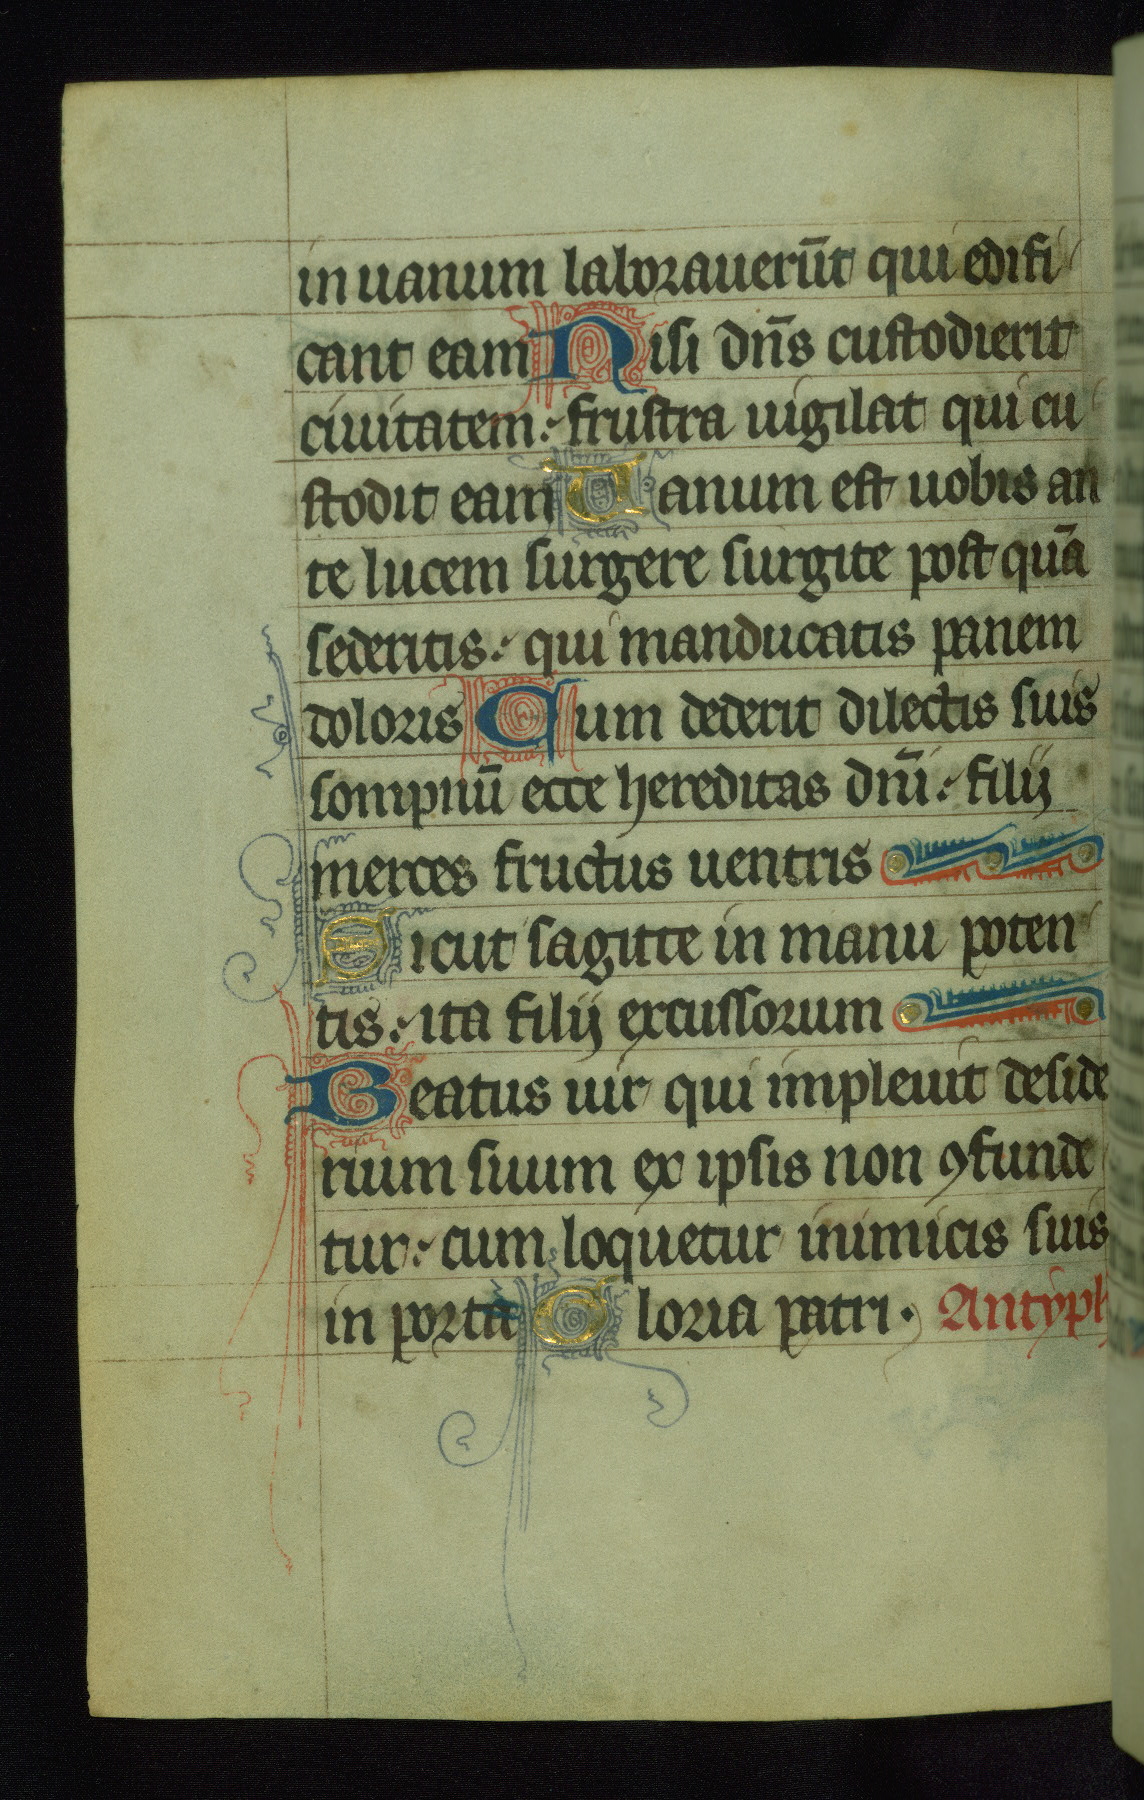 in uanum laborauerūt qui edifi
cant eam Nisi dn̄s custodierit
ciuitatem: frustra uigilat qui cu
stodit eam Uanum est uobis an
te lucem surgere surgite post quā
sederitis: qui manducatis panem
doloris Cum dederit dilectis suis
sompnū ecce hereditas dn̄i: filij
merces fructus uentris
Sicut sagitte in manu poten
tis: ita filij excussorum
Beatus uir qui impleuit deside
rium suum ex ipsis non ꝯfunde
tur: cum loquetur inimicis suis
in porta Gloria patri. Antyph